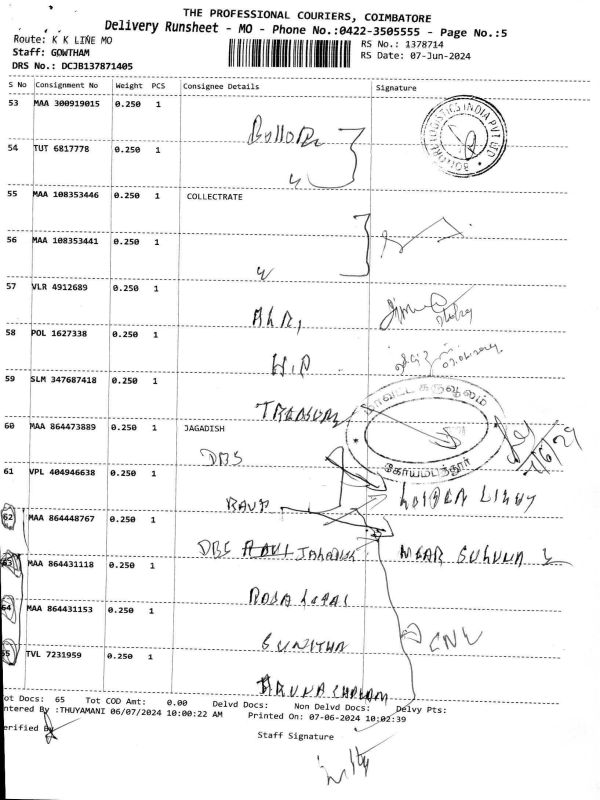 THE PROFESSIONAL COURIERS, COIMBATORE
Delivery Runsheet - MO - Phone No.:0422-3505555 - Page No.:5
Route: K K LINE MO
RS No.: 1378714
Staff: GOWTHAM
RS Date: 07-Jun-2024
DRS No.: DCJB137871405
S No Consignment No Weight PCS Consignee Details Signature
53 MAA 300919015 0.250 1
54 TUT 6817778 0.250 1
55 MAA 108353446 0.250 1 COLLECTRATE
56 MAA 108353441 0.250 1
57 VLR 4912689 0.250 1
58 POL 1627338 0.250 1
H.P
59 SLM 347687418 0.250 1
TREASURY
மாவட்ட கருவூலம்
கோயம்புத்தூர்
60 MAA 864473889 0.250 1 JAGADISH
DBS
61 VPL 404946638 0.250 1
62 MAA 864448767 0.250 1
DBS
63 MAA 864431118 0.250 1
64 MAA 864431153 0.250 1
SUNITHA
65 TVL 7231959 0.250 1
ARUNACHALAM
ot Docs: 65 Tot COD Amt: 0.00 Delvd Docs: Non Delvd Docs: Delvy Pts:
ntered By :THUYAMANI 06/07/2024 10:00:22 AM Printed On: 07-06-2024 10:02:39
erified By
Staff Signature